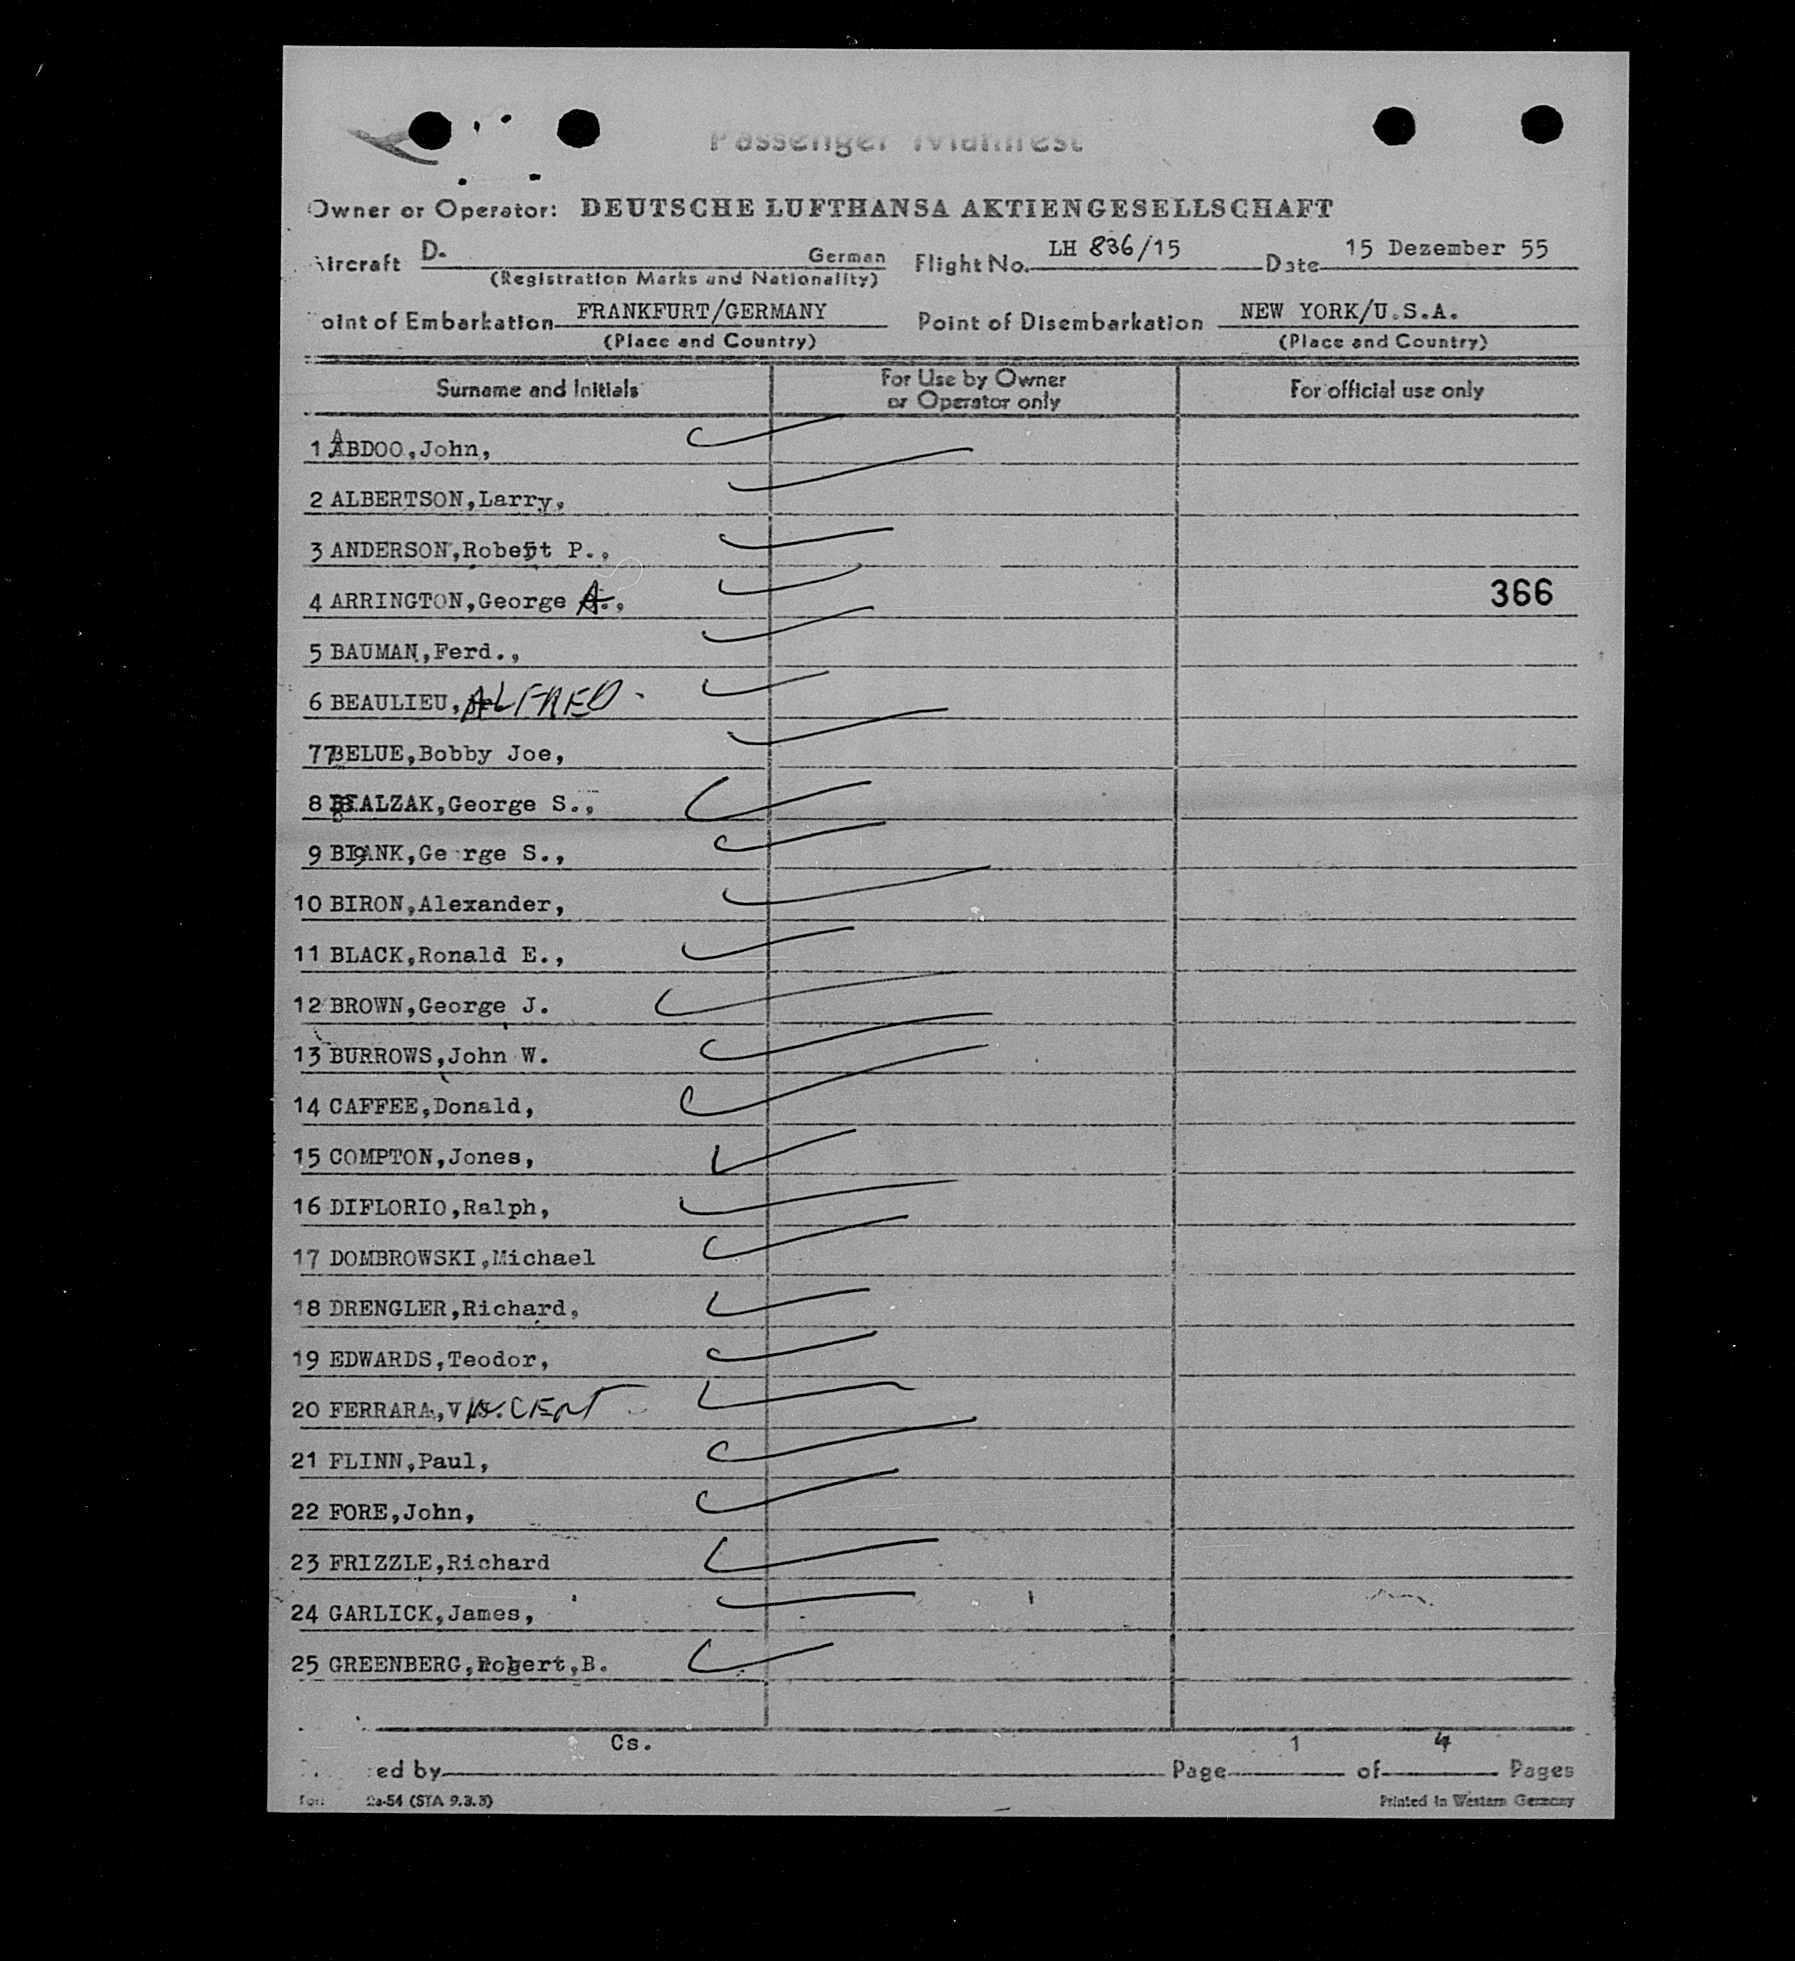 Passenger Manifest
Owner or Operator: DEUTSCHE LUFTHANSA AKTIENGESELLSCHAFT
Aircraft D. German Flight No. LH 836/15 Date 15 Dezember 55
(Registration Marks and Nationality)
oint of Embarkation FRANKFURT/GERMANY Point of Disembarkation NEW YORK/U.S.A.
(Place and Country) (Place and Country)
Surname and Initials For Use by Owner or Operator only For official use only
1 ABDOO,John,
2 ALBERTSON,Larry,
3 ANDERSON,Robert P.,
4 ARRINGTON,George A., 366
5 BAUMAN,Ferd.,
6 BEAULIEU, ALFRED.
7 BELUE,Bobby Joe,
8 BIALZAK,George S.,
9 BLANK,Ge rge S.,
10 BIRON,Alexander,
11 BLACK,Ronald E.,
12 BROWN,George J.
13 BURROWS,John W.
14 CAFFEE,Donald,
15 COMPTON,Jones,
16 DIFLORIO,Ralph,
17 DOMBROWSKI,Michael
18 DRENGLER,Richard,
19 EDWARDS,Teodor,
20 FERRARA,VINCENT
21 FLINN,Paul,
22 FORE,John,
23 FRIZZLE,Richard
24 GARLICK,James,
25 GREENBERG,Robert,B.
Cs. 1 4
ed by Page of Pages
2a-54 (STA 9.3.3) Printed in Western Germany